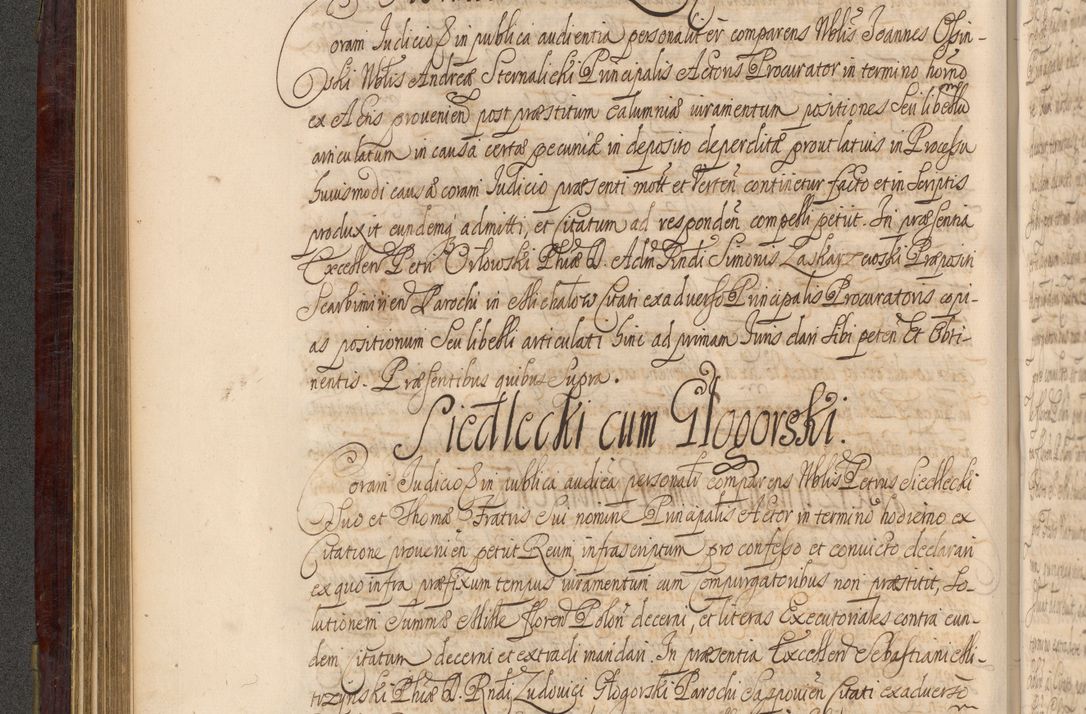 Coram Judicio et in publica audientia personaliter comparens Nblis Joannes Osin-
ski Nblis Andreæ Sternalicki Principalis Actoris Procurator in termino horno
ex Actis provenien post præstitum Calumniæ iuramentum positiones seu libellum
articulatum in causa certæ pecuniæ in deposito deperditæ prout latius in Processu
huiusmodi causæ coram Judicio præsenti mot et Verten continetur facto et in scriptis
produxit eundemq admitti, et Citatum ad responden compelli petiit. In præsentia
Excellen Petri Orlowski Phiæ D. Adm Rndi Simonis Zaskarzewski Præpositi
Scarbimirien Parochi in Michalow Citati ex adverso Principalis Procuratoris copi-
as positionum seu libelli articulati hinc ad primam Juris dari sibi peten et obti-
nentis. Præsentibus quibus supra.
Siedlecki cum Glogorski.
Coram Judicio et in publica audića personalr comparens Nblis Petrus Siedlecki
Suo et Thomæ Fratris sui nomine Principalis Actor in termino hodierno ex
Citatione provenien petiit Reum infrascriptum pro confesso et convicto declarari
ex quo infra præfixum tempus iuramentum cum compurgatoribus non præstitit, so-
lutionem Summæ Mille floren Polon decerni, et literas Executoriales contra eun-
dem Citatum decerni et extradi mandari. In præsentia Excellen Sebastiani Mi-
trzynski Phiæ D. Rndi Ludovici Glogorski Parochi Citati ex adverso